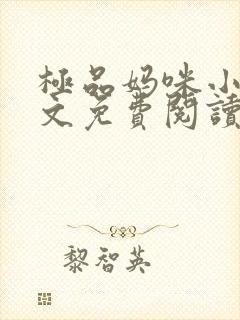 極品妈咪小
文免費閱讀
黎智英